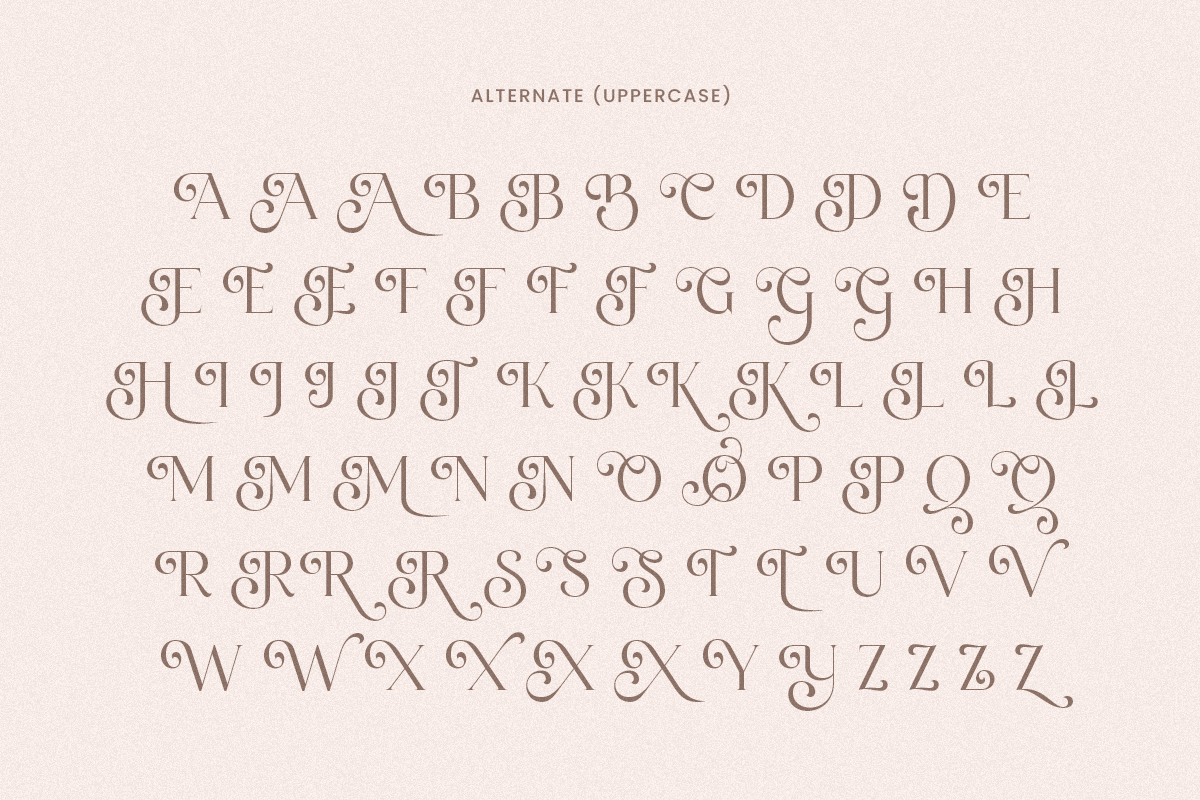 ALTERNATE (UPPERCASE)
A A A B B B C D D D E
E E E F F F F G G G H H
H I J J J J K K K K L L L L
M M M N N O O P P Q Q
R R R R S S S T T U V V
W W X X X X Y Y Z Z Z Z